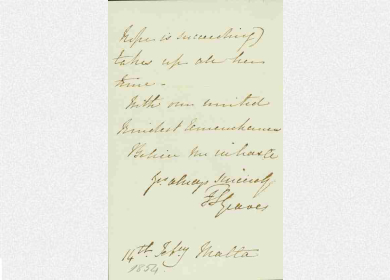 is succeeding)
takes up all her
time -
With our united
kindest remembrances
Believe me in haste
Yrs always sincerely
14th Feby Malta
1854.